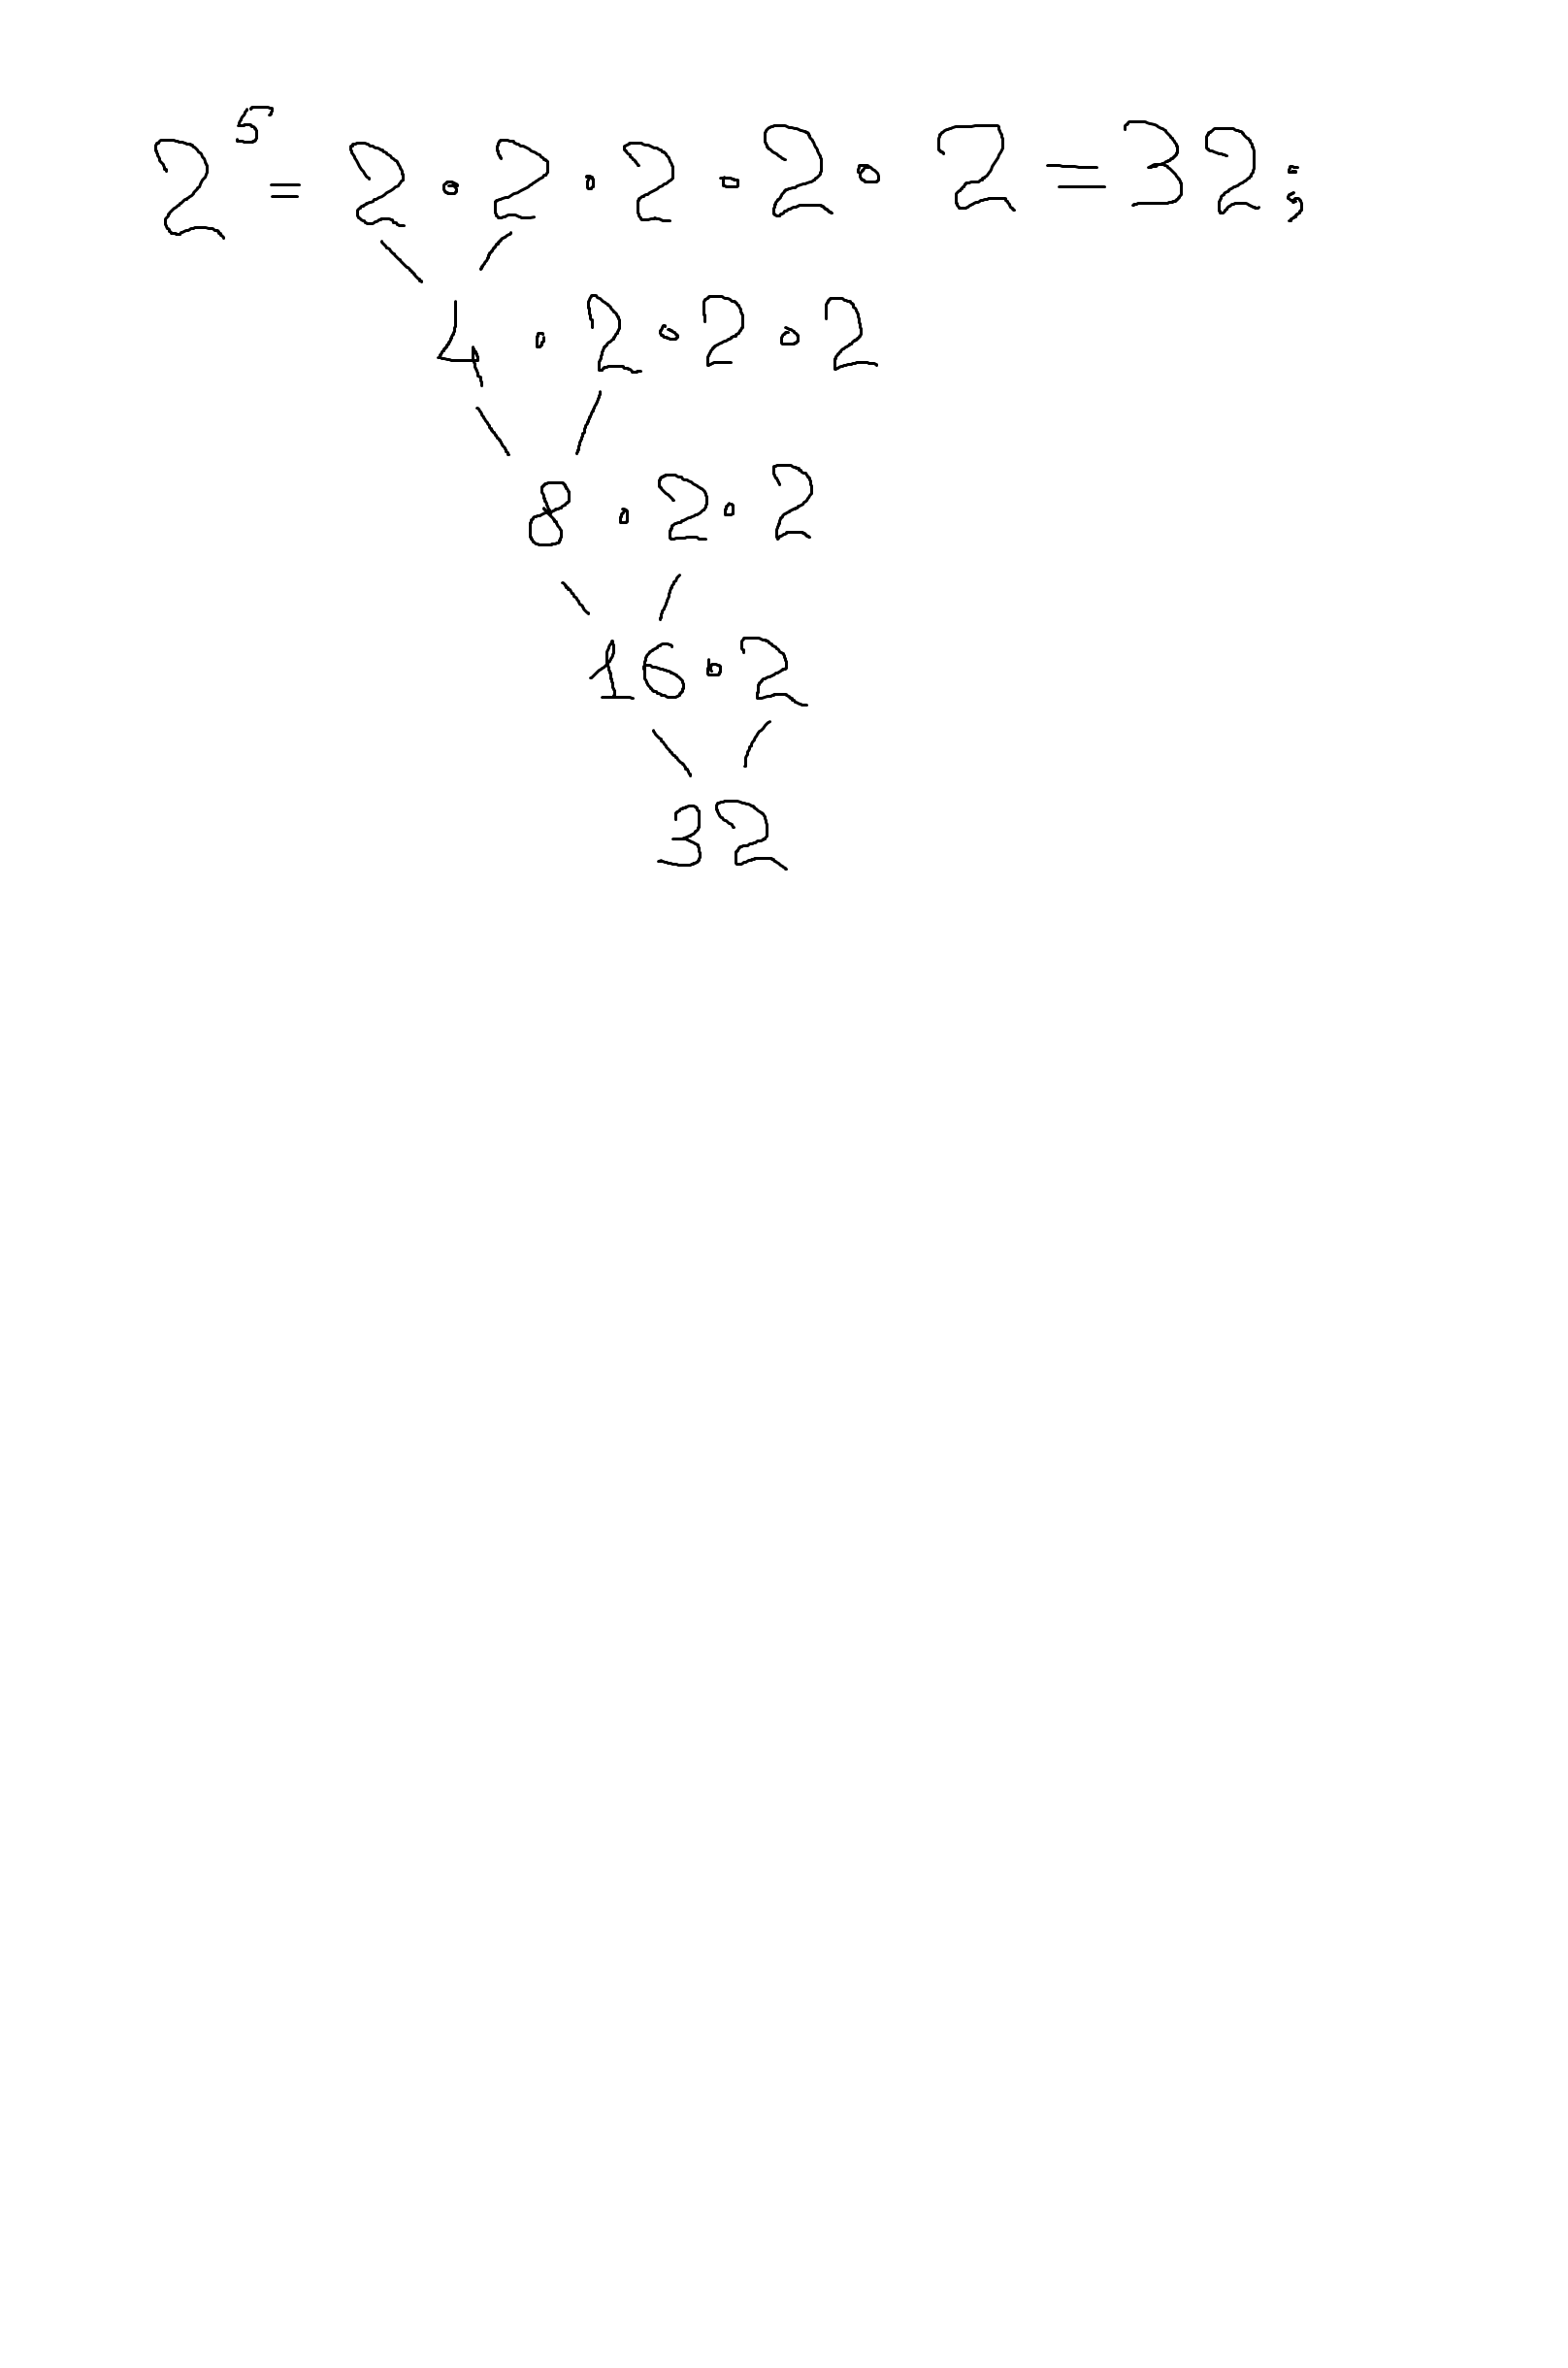 2⁵ = 2 · 2 · 2 · 2 · 2 = 32;
4 · 2 · 2 · 2
8 · 2 · 2
16 · 2
32